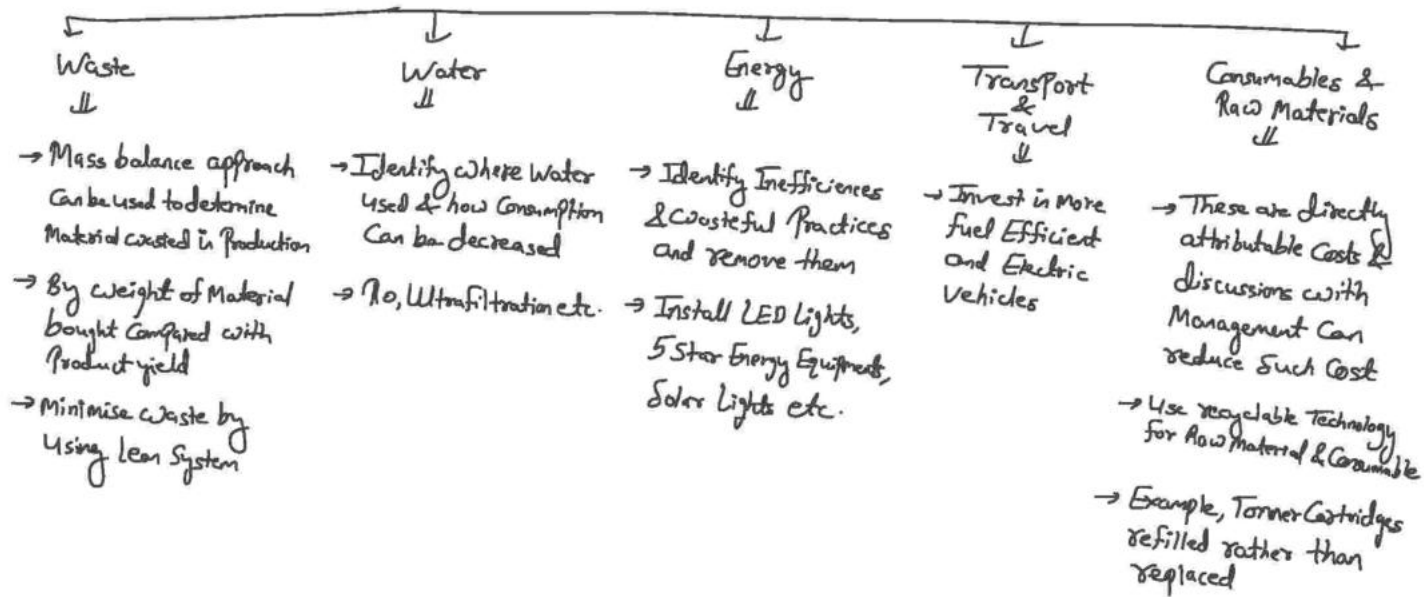 Waste
⇓
→ Mass balance approach
Can be used to determine
Material wasted in Production
→ By weight of Material
bought Compared with
Product yield
→ Minimise waste by
Using Lean System
Water
⇓
→ Identify where Water
used & how Consumption
Can be decreased
→ RO, Ultrafiltration etc.
Energy
⇓
→ Identify Inefficiences
& wasteful Practices
and remove them
→ Install LED Lights,
5 Star Energy Equipments,
Solar Lights etc.
Transport
&
Travel
⇓
→ Invest in More
fuel Efficient
and Electric
Vehicles
Consumables &
Raw Materials
⇓
→ These are directly
attributable Costs &
discussions with
Management Can
reduce Such Cost
→ Use recyclable Technology
for Raw Material & Consumable
→ Example, Tonner Cartridges
refilled rather than
replaced